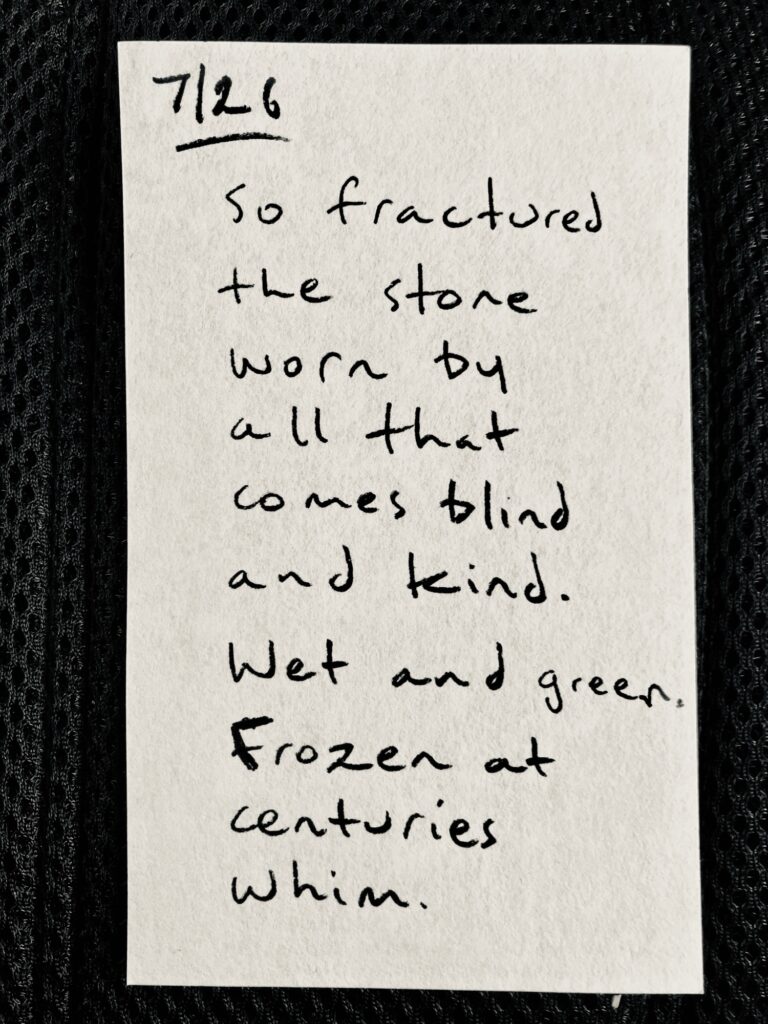 7/26
So fractured
the stone
worn by
all that
comes blind
and kind.
Wet and green.
Frozen at
centuries
whim.